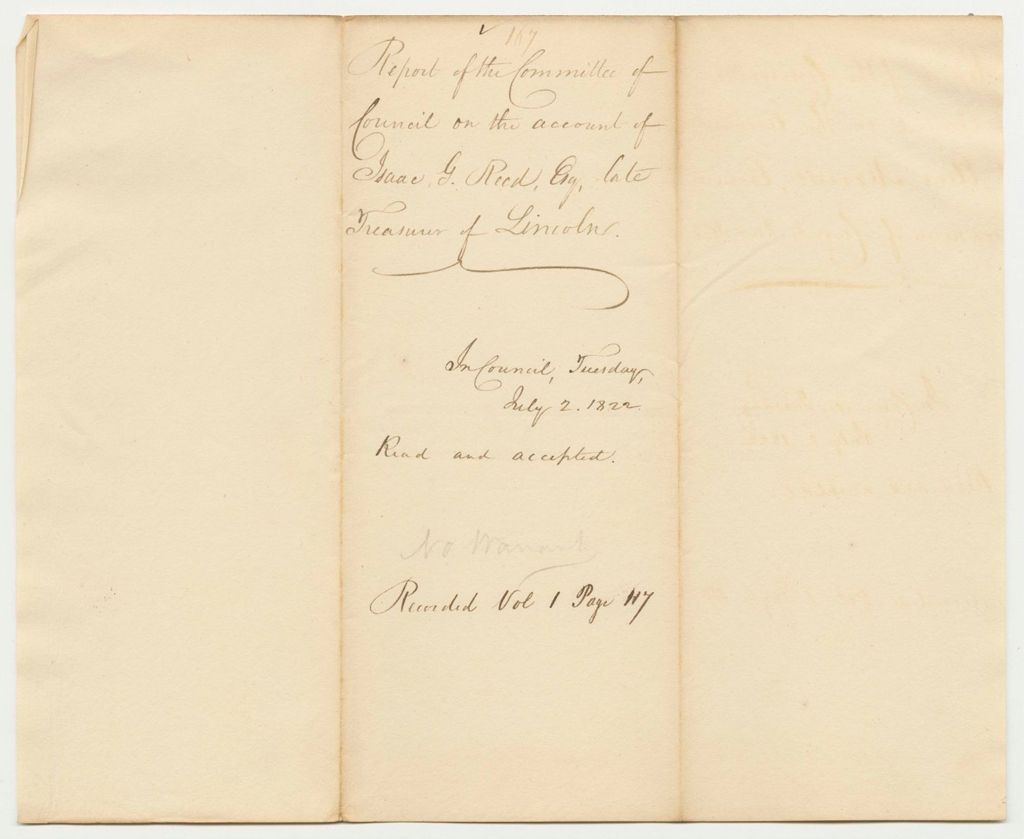 ✓ 167
Report of the Committee of
Council on the account of
Isaac G. Reed, Esq, late
Treasurer of Lincoln.
In Council, Tuesday,
July 2. 1822.
Read and accepted.
No Warrant
Recorded Vol 1 Page 117